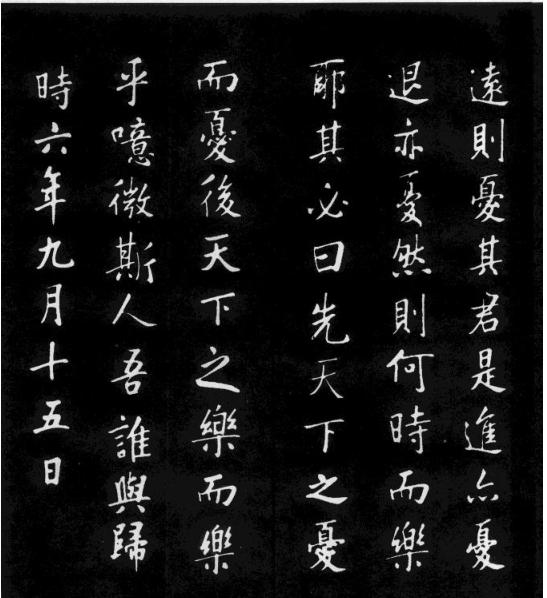 遠則憂其君是進亦憂
退亦憂然則何時而樂
耶其必曰先天下之憂
而憂後天下之樂而樂
乎噫微斯人吾誰與歸
時六年九月十五日